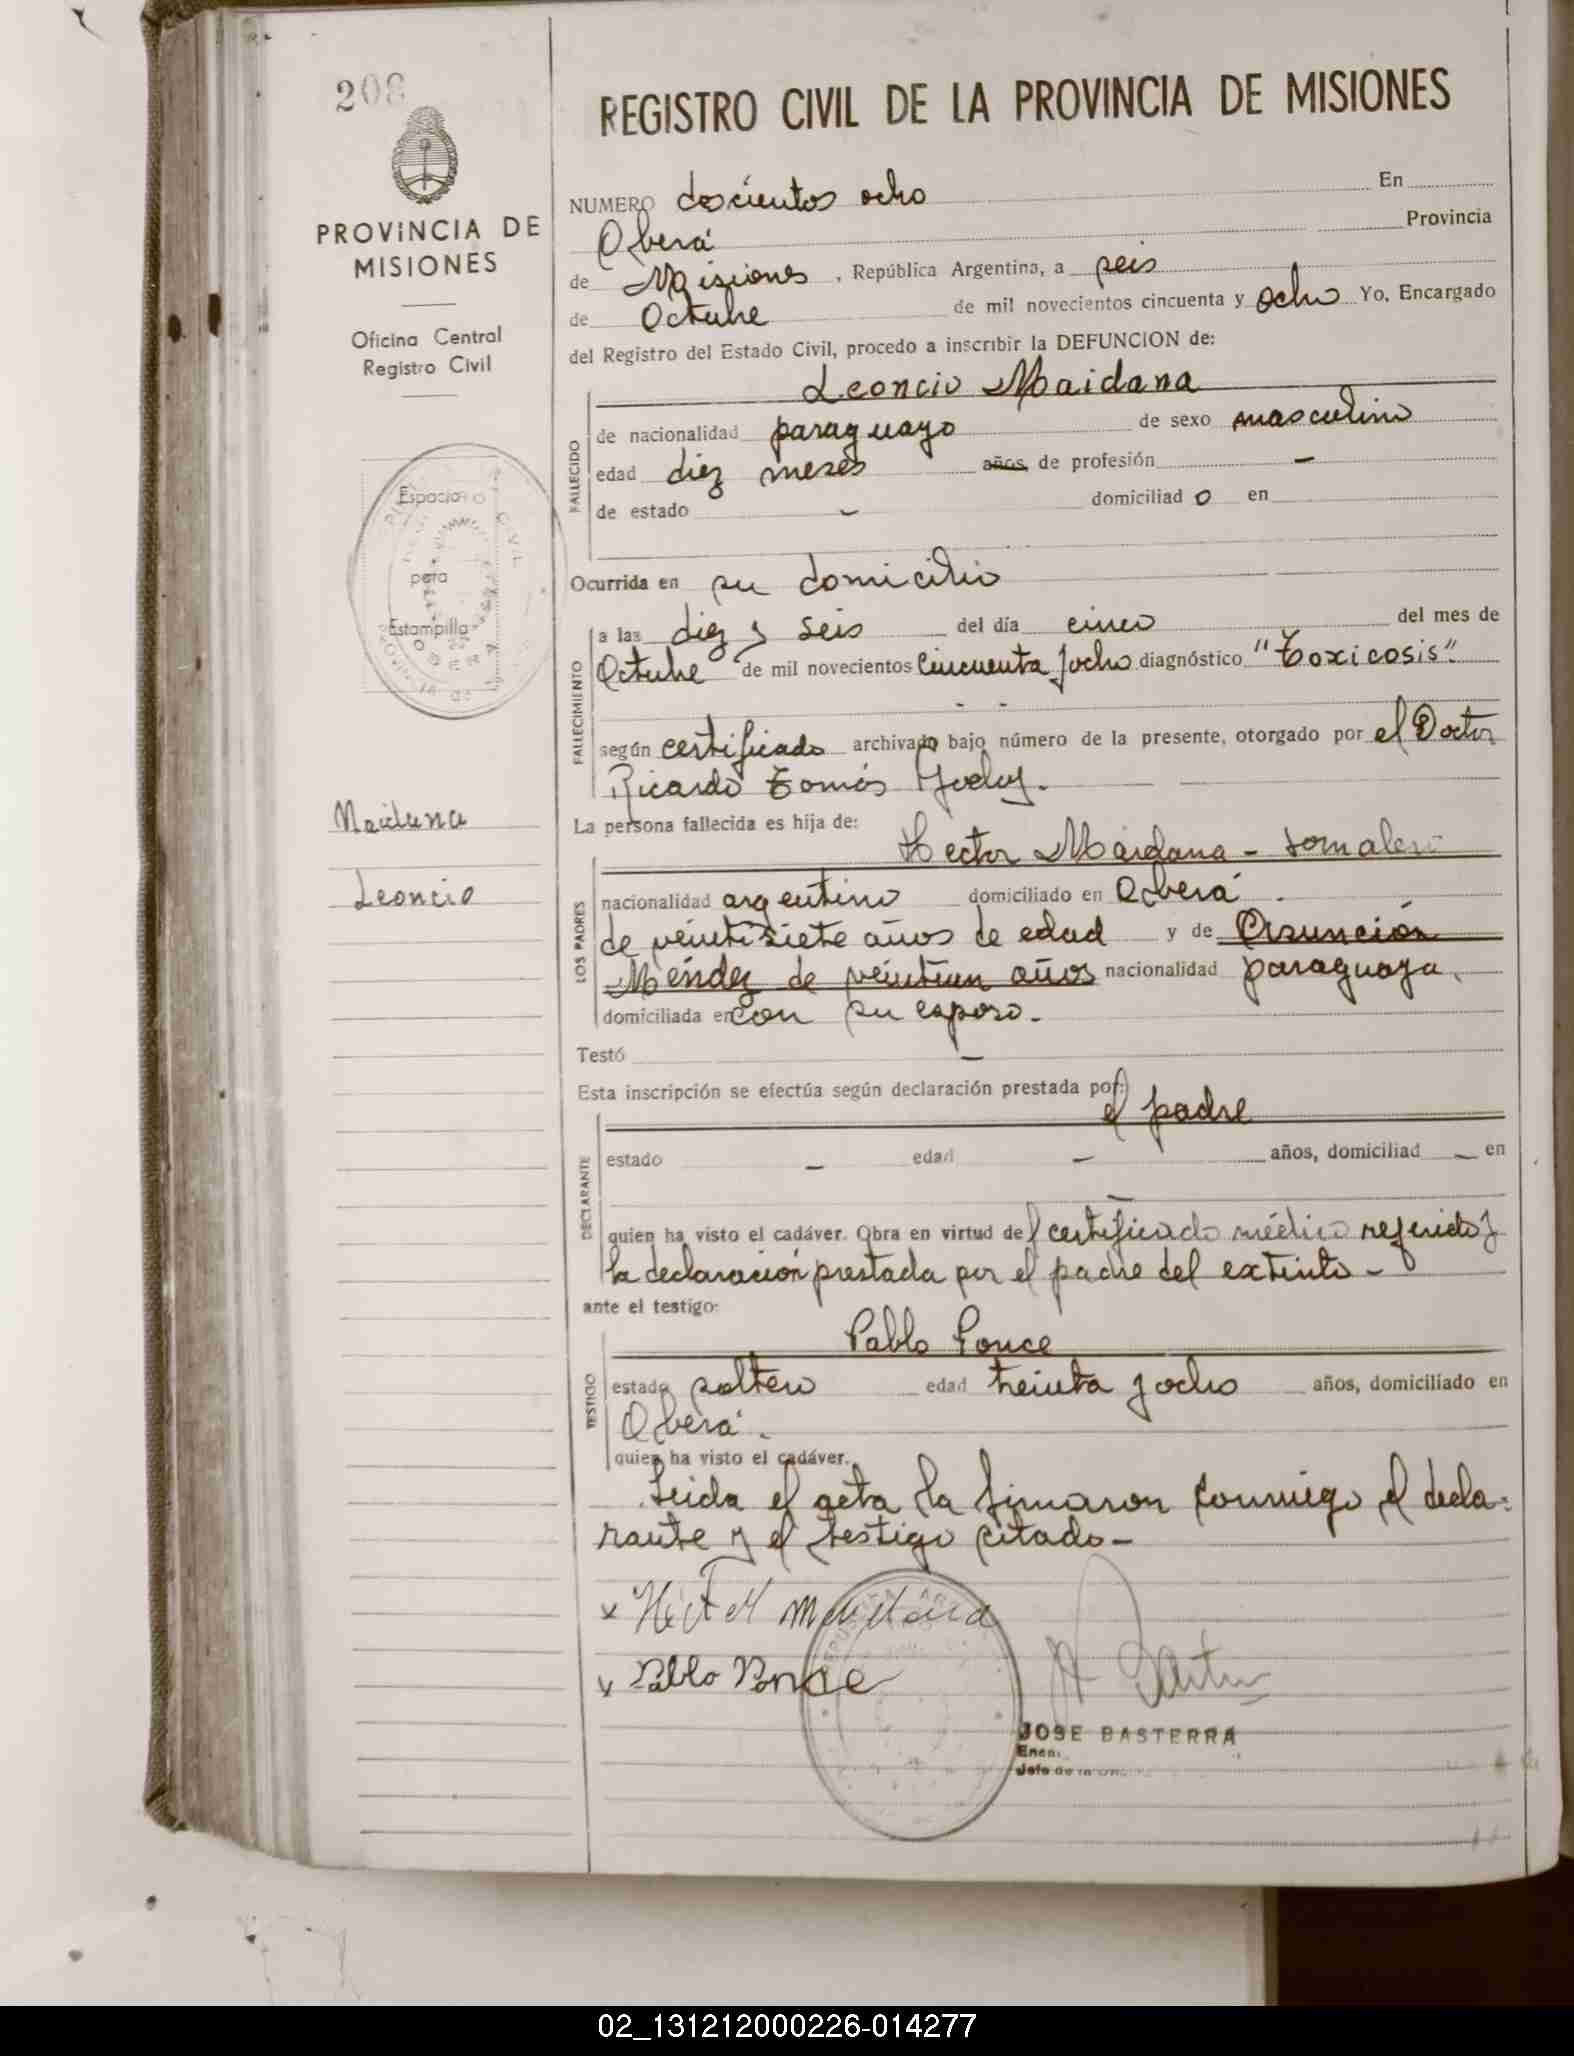 208
REGISTRO CIVIL DE LA PROVINCIA DE MISIONES
PROVINCIA DE
MISIONES
Oficina Central
Registro Civil
Espacio
para
Estampilla
Maidana
Leoncio
NUMERO doscientos ocho En
Oberá Provincia
de Misiones, República Argentina, a seis
de Octubre de mil novecientos cincuenta y ocho Yo, Encargado
del Registro del Estado Civil, procedo a inscribir la DEFUNCION de:
Leoncio Maidana
FALLECIDO
de nacionalidad paraguayo de sexo masculino
edad diez meses años de profesión –
de estado – domiciliado en
Ocurrida en su domicilio
FALLECIMIENTO
a las diez y seis del día cinco del mes de
Octubre de mil novecientos cincuenta y ocho diagnóstico "Toxicosis"
según certificado archivado bajo número de la presente, otorgado por el Doctor
Ricardo Tomás Godoy.
La persona fallecida es hija de:
Hector Maidana - Jornalero
LOS PADRES
nacionalidad argentino domiciliado en Oberá.
de veintisiete años de edad y de Asunción
Méndez de veintiun años nacionalidad paraguaya,
domiciliada en con su esposo.-
Testó –
Esta inscripción se efectúa según declaración prestada por:
el padre
DECLARANTE
estado – edad – años, domiciliad – en
–
quien ha visto el cadáver. Obra en virtud del certificado médico referido y
la declaración prestada por el padre del extinto -
ante el testigo:
Pablo Ponce
TESTIGO
estado soltero edad treinta y ocho años, domiciliado en
Oberá.
quien ha visto el cadáver.
Leida el acta la firmaron conmigo el decla-
rante y el testigo citado -
x Hector Maidana
x Pablo Ponce
JOSE BASTERRA
02_131212000226-014277